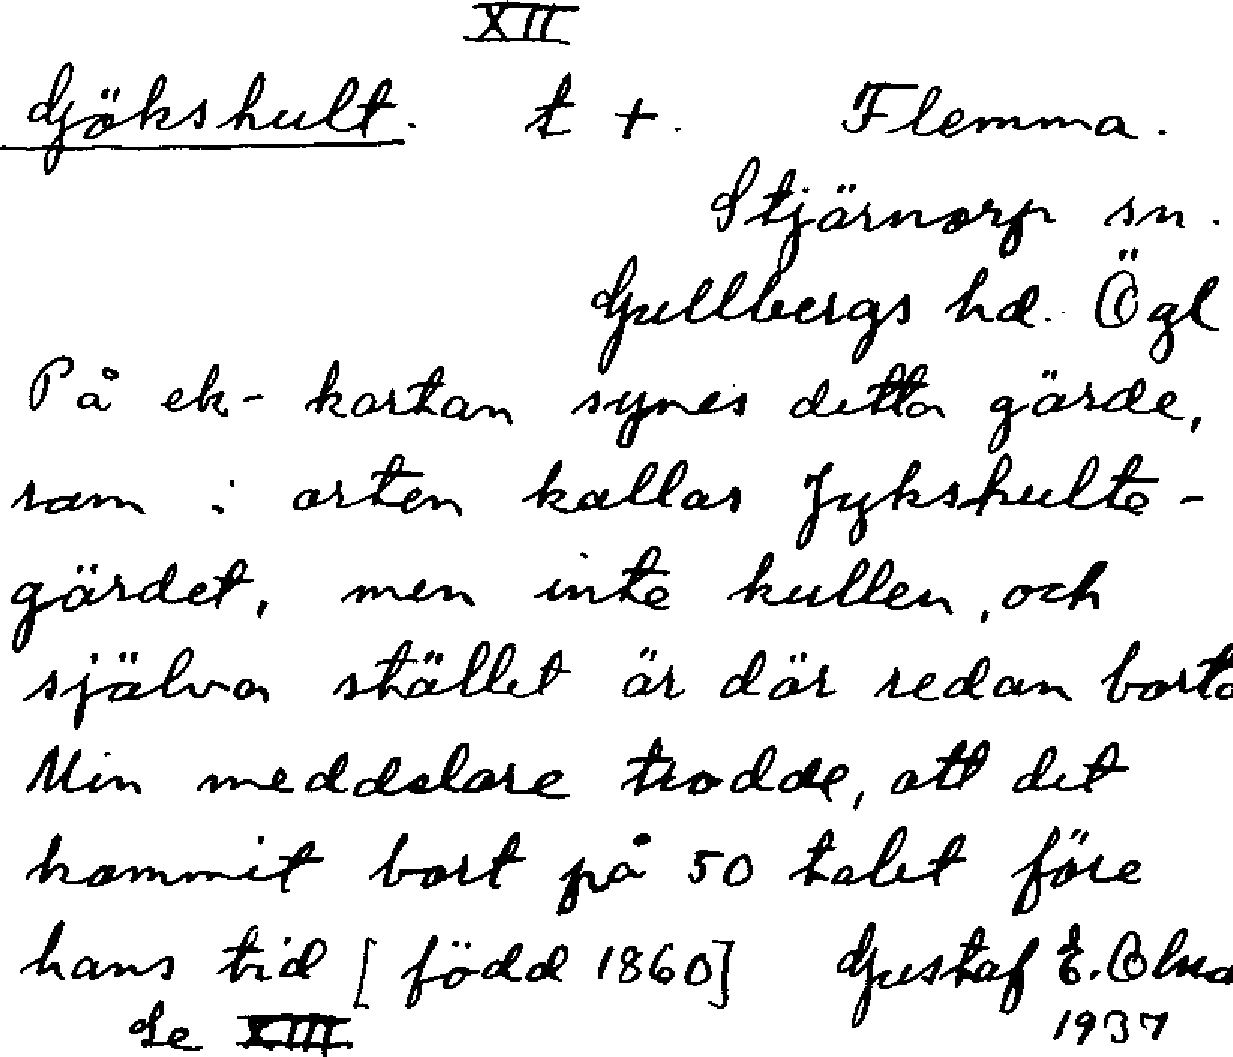 XII
Gökshult. t +. Flemma.
Stjärnorp sn.
Gullbergs hd. Ögl
På ek-kartan synes detta gärde,
som i orten kallas Jykshulte-
gärdet, men inte kullen, och
själva stället är där redan borta
Min meddelare trodde, att det
kommit bort på 50 talet före
hans tid [född 1860] Gustaf E.
Se XIII 1937